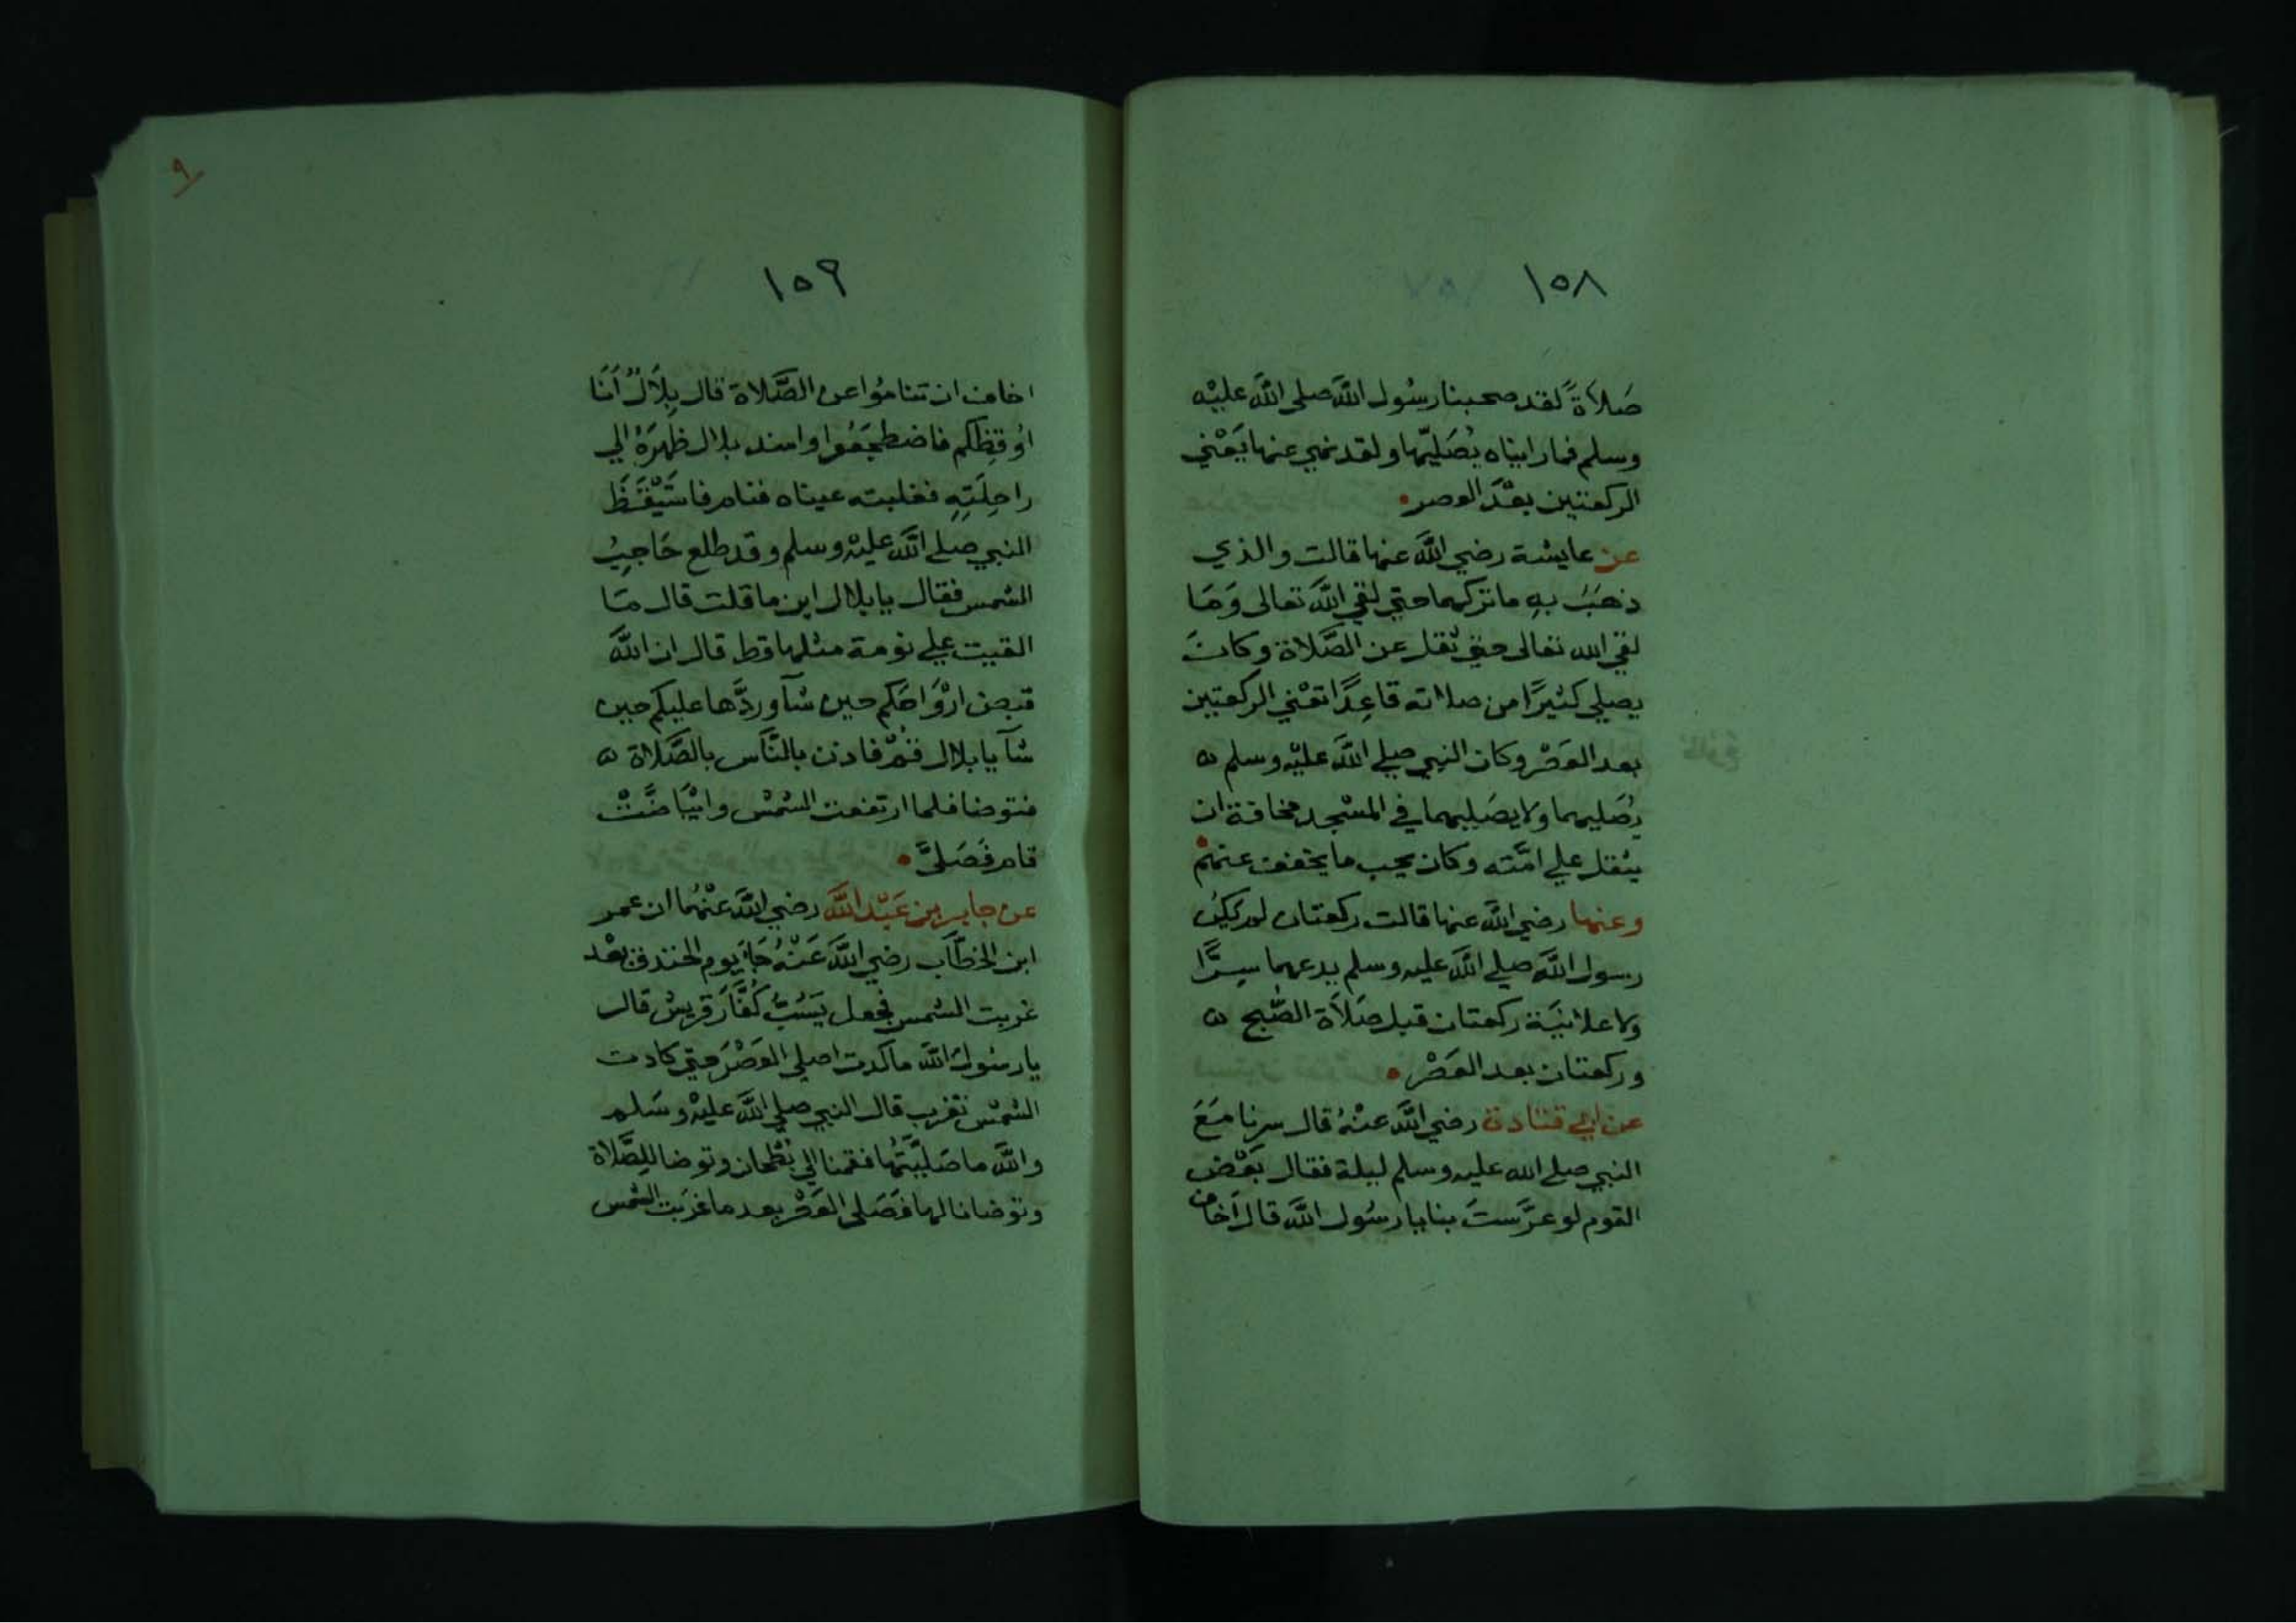 ١٥٨
صَلاةً لقد صحبنا رسُول اللَّه صلى اللَّه عليْه
وسلم فما رايناه يُصَليّها ولقد نهي عنها يَعْني
الركعتين بعْدَ العصر
عن عايشة رضي اللَّه عنها قالت والذي
ذهَبَ بهِ ما تركهما حتي لقي اللَّه تعالى وَمَا
لقي الله تعالى حتي ثقل عن الصَّلاة وكانَ
يصلي كثيرًا من صلاته قاعِدًا تعْني الركعتين
بعد العَصْر وكان النبي صلي اللَّه عليْه وسلم ه
يُصَليهما ولا يصَليهما في المسْجد مخافة ان
يثقل علي امَّته وكان يحب ما يخفف عنهمْ
وعنها رضي اللَّه عنها قالت ركعتان لم يكن
رسول اللَّه صلي اللَّه عليه وسلم يدعهما سِرًّا
ولا علانيَة ركعتان قبل صَلَاة الصُّبح ه
وركعتان بعد العَصْر
عن ابي قتادة رضي اللَّه عنْهُ قال سرنا مَعَ
النبي صلي الله عليه وسلم ليلة فقال بَعْض
القوم لو عرَّستَ بنا يا رسُول اللَّه قال اَخاف
٩
١٥٩
اخاف ان تنامُوا عن الصَّلاة قال بِلَالٌ اَنَا
اوُقِظكم فاضطجَعُوا واسند بلال ظهرَهُ الي
راحِلَتِهِ فغلبته عيناه فنام فاسْتَيْقَظَ
النبي صلي اللَّه عليْه وسلم وقد طلع حَاجِبُ
الشمس فقال يا بلال اين ما قلت قال مَا
القيت علي نومة مثلها قط قال ان اللَّه
قبض ارْوَاحَكم حين شآ وردَّها عليكم حين
شآ يا بلال قُمْ فاذن بالنَّاس بالصَّلاة ه
فتوضا فلما ارتفعت الشمْس وابْيَاضَّتْ
قام فَصَلىَّ
عن جابر بن عَبْد اللَّه رضي اللَّه عنْهُما ان عمر
ابن الخطَّاب رضي اللَّه عَنْهُ جَآءَ يوم الخندق بعْد
غربت الشمس فجعل يَسُبُّ كُفَّارَ قريش قال
يا رسُول اللَّه ما كدت اصلي العَصْرَ حتي كادت
الشمْس تغرب قال النبي صلي اللَّه عليْه وسَلم
واللَّه ما صَليْتُهَا فقمنا الي بُطحان وتوضا للِصَّلاة
وتوضانا لها فَصَلى العَصْر بعد ما غرَبت الشمس